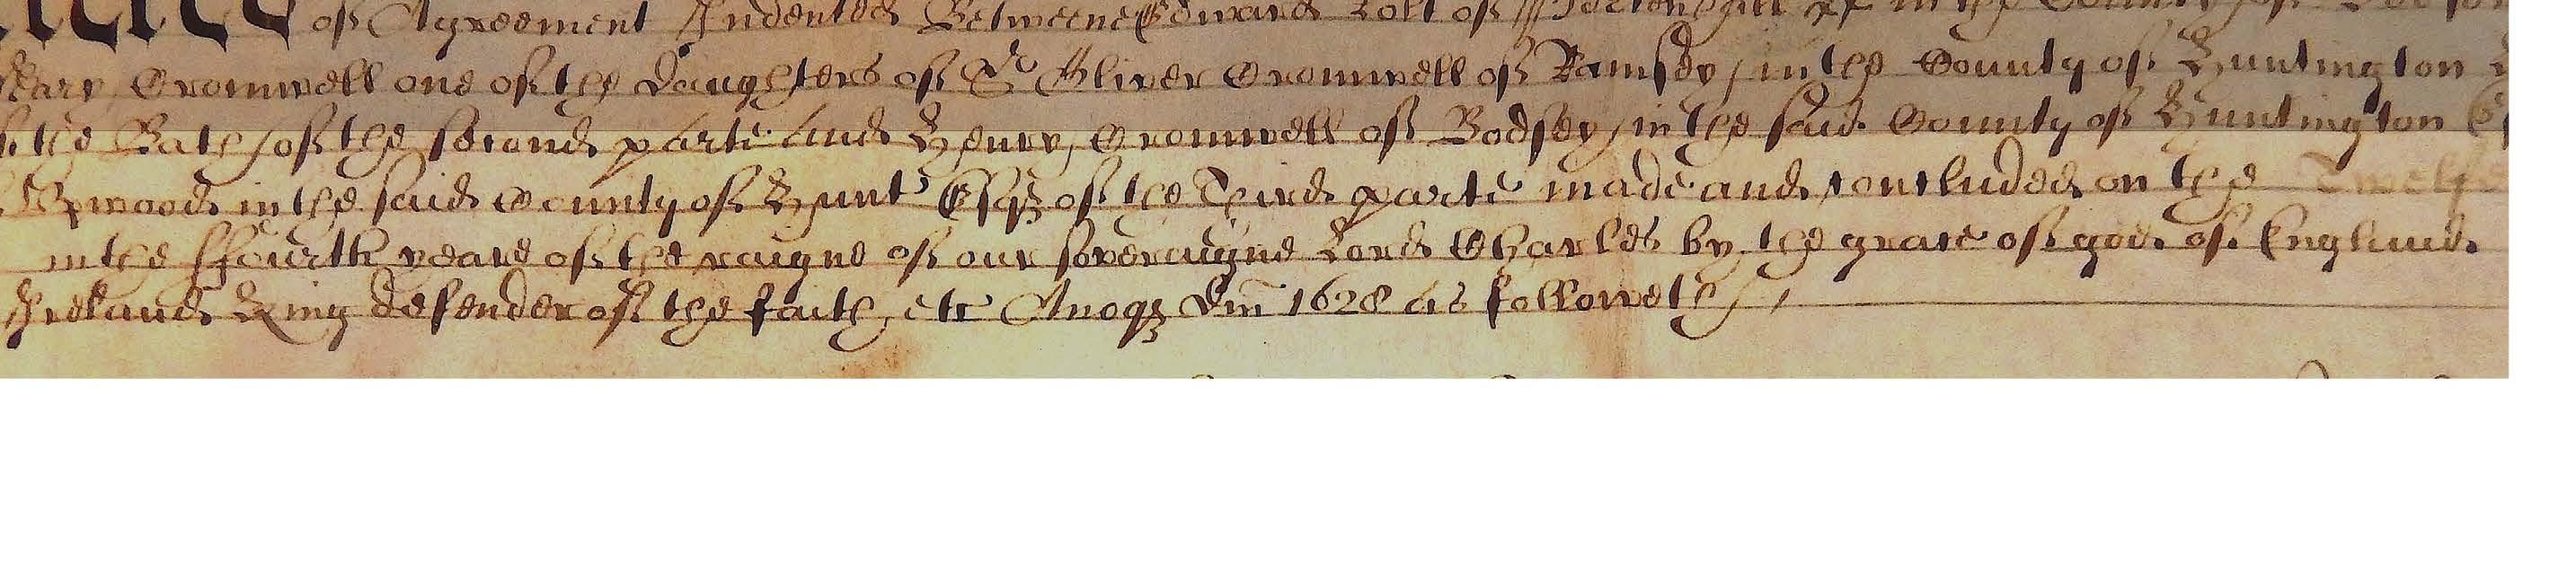 of Agreement Indented Betweene Edward Rolt of in the County of
Cromwell one of the Daughters of Sr Oliver Cromwell of Ramsey in the County of Huntington
the Bath of the second parte And Henry Cromwell of Bodsey in the said County of Huntington
Upwood in the said County of Hunt Esqz of the Third parte made and concluded on the Twelf
in the ffourth yeare of the raigne of our soveraigne Lord Charles by the grace of god of England
Ireland King defender of the faith etc Anoqz Dm 1628 as followeth